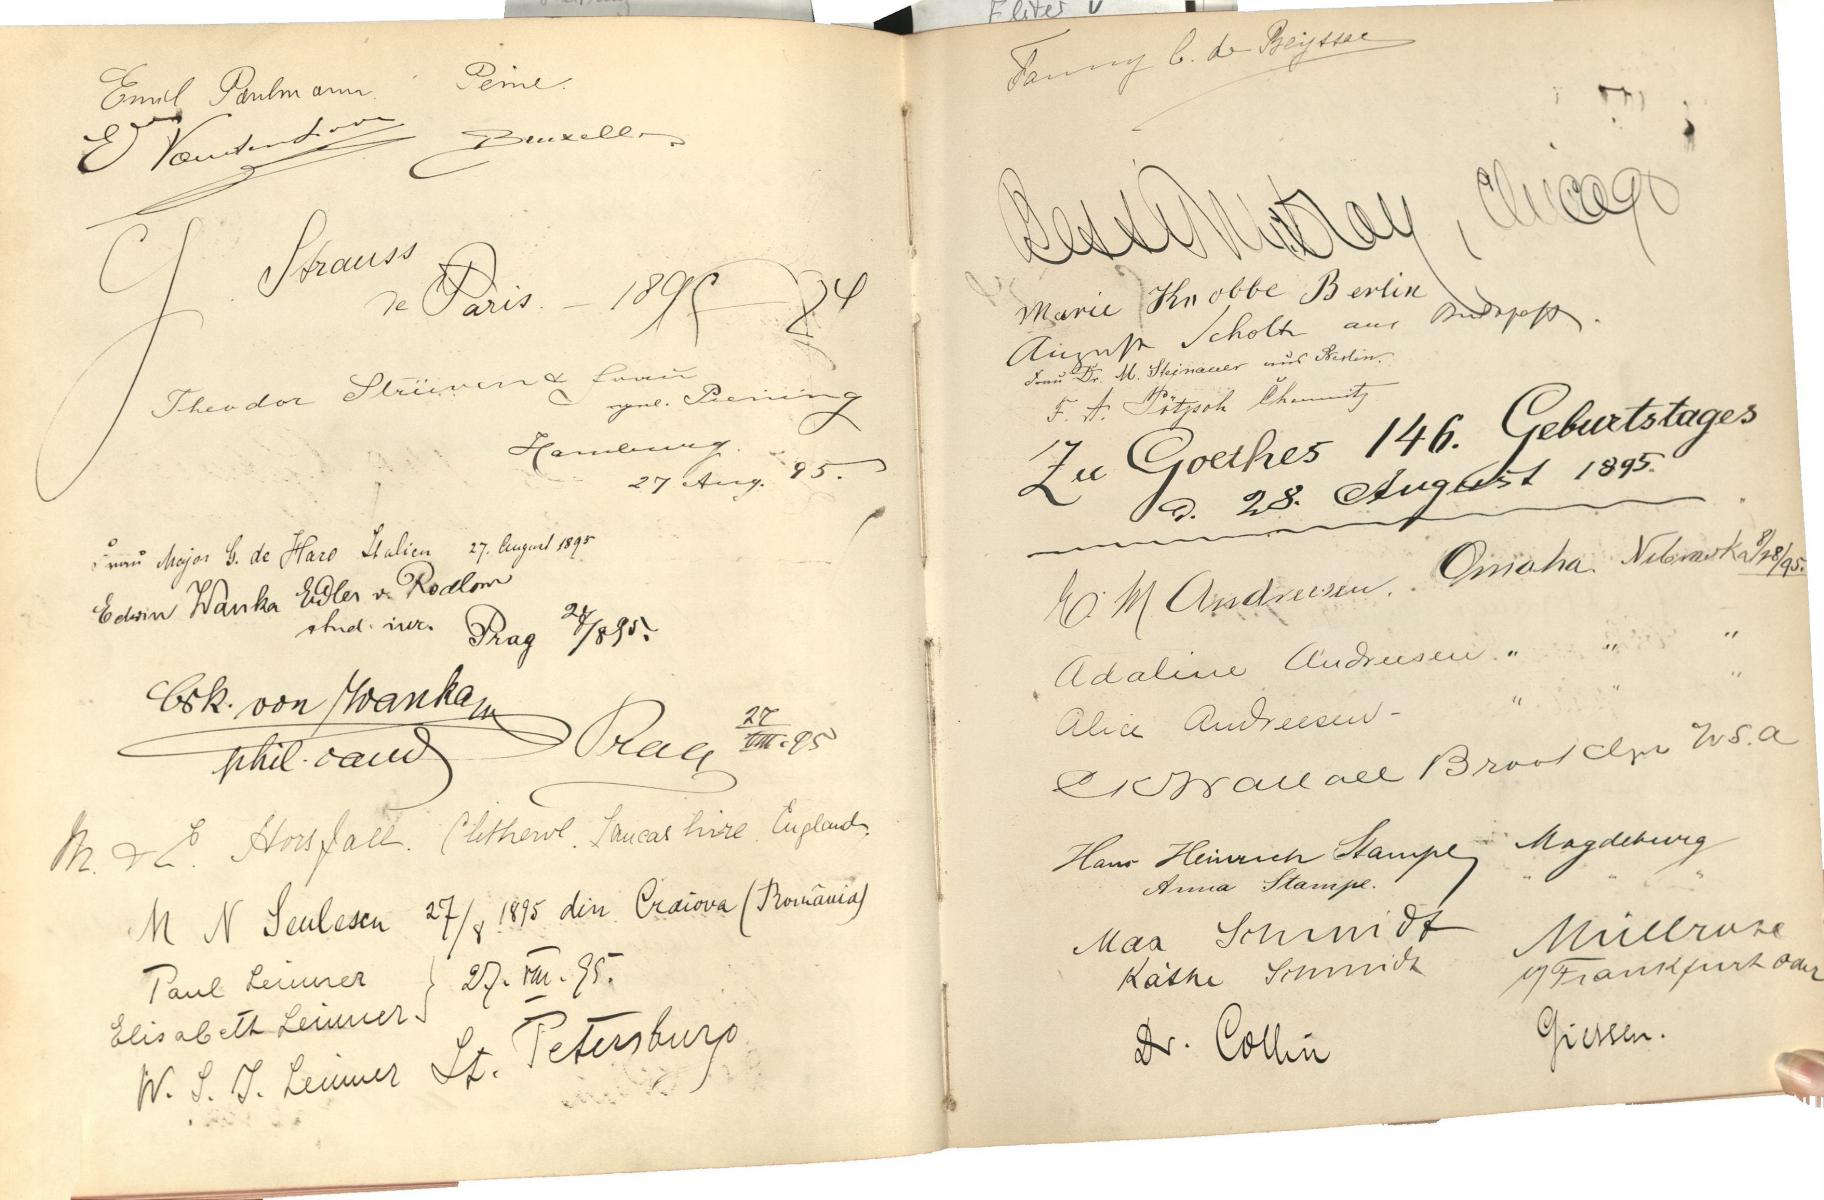 Emil Paulmann. Peine.
Bruxelles
J. Strauss
de Paris. – 1895 – 24
Theodor Strüven & Frau
geb. Piening
Hamburg.
27 Aug. 95.
Frau Major G. de Haro Italien 27. August 1895
Edwin Wanka Edler v. Rodlow
stud. iur. Prag 27/8 95.
Osk. von Wanka
phil. cand Prag 27/VIII. 95
M. & E. Horsfall. Clitheroe. Lancashire England.
M N Seulescu 27/8 1895 din Craiova (România)
Paul Leuner } 27. VIII. 95.
Elisabeth Leuner
W. S. J. Leuner St. Petersburg
Fanny C. de
Bessie Murray, Chicago
Marie Knobbe Berlin
August Scholtz aus Budapest.
Frau Dr. M. Steinauer aus Berlin.
F. A. Pötzsch Chemnitz
Zu Goethes 146. Geburtstages
d. 28. August 1895.
E. M. Andreesen. Omaha. Nebraska 8/28/95.
Adaline Andreesen " " "
Alice Andreesen - " " "
Wallace Brooklyn U S. A
Hans Heinrich Stampe, Magdeburg
Anna Stampe. " " "
Max Schmidt Müllrose
Käthe Schmidt b/ Frankfurt Oder
Dr. Collin Giessen.